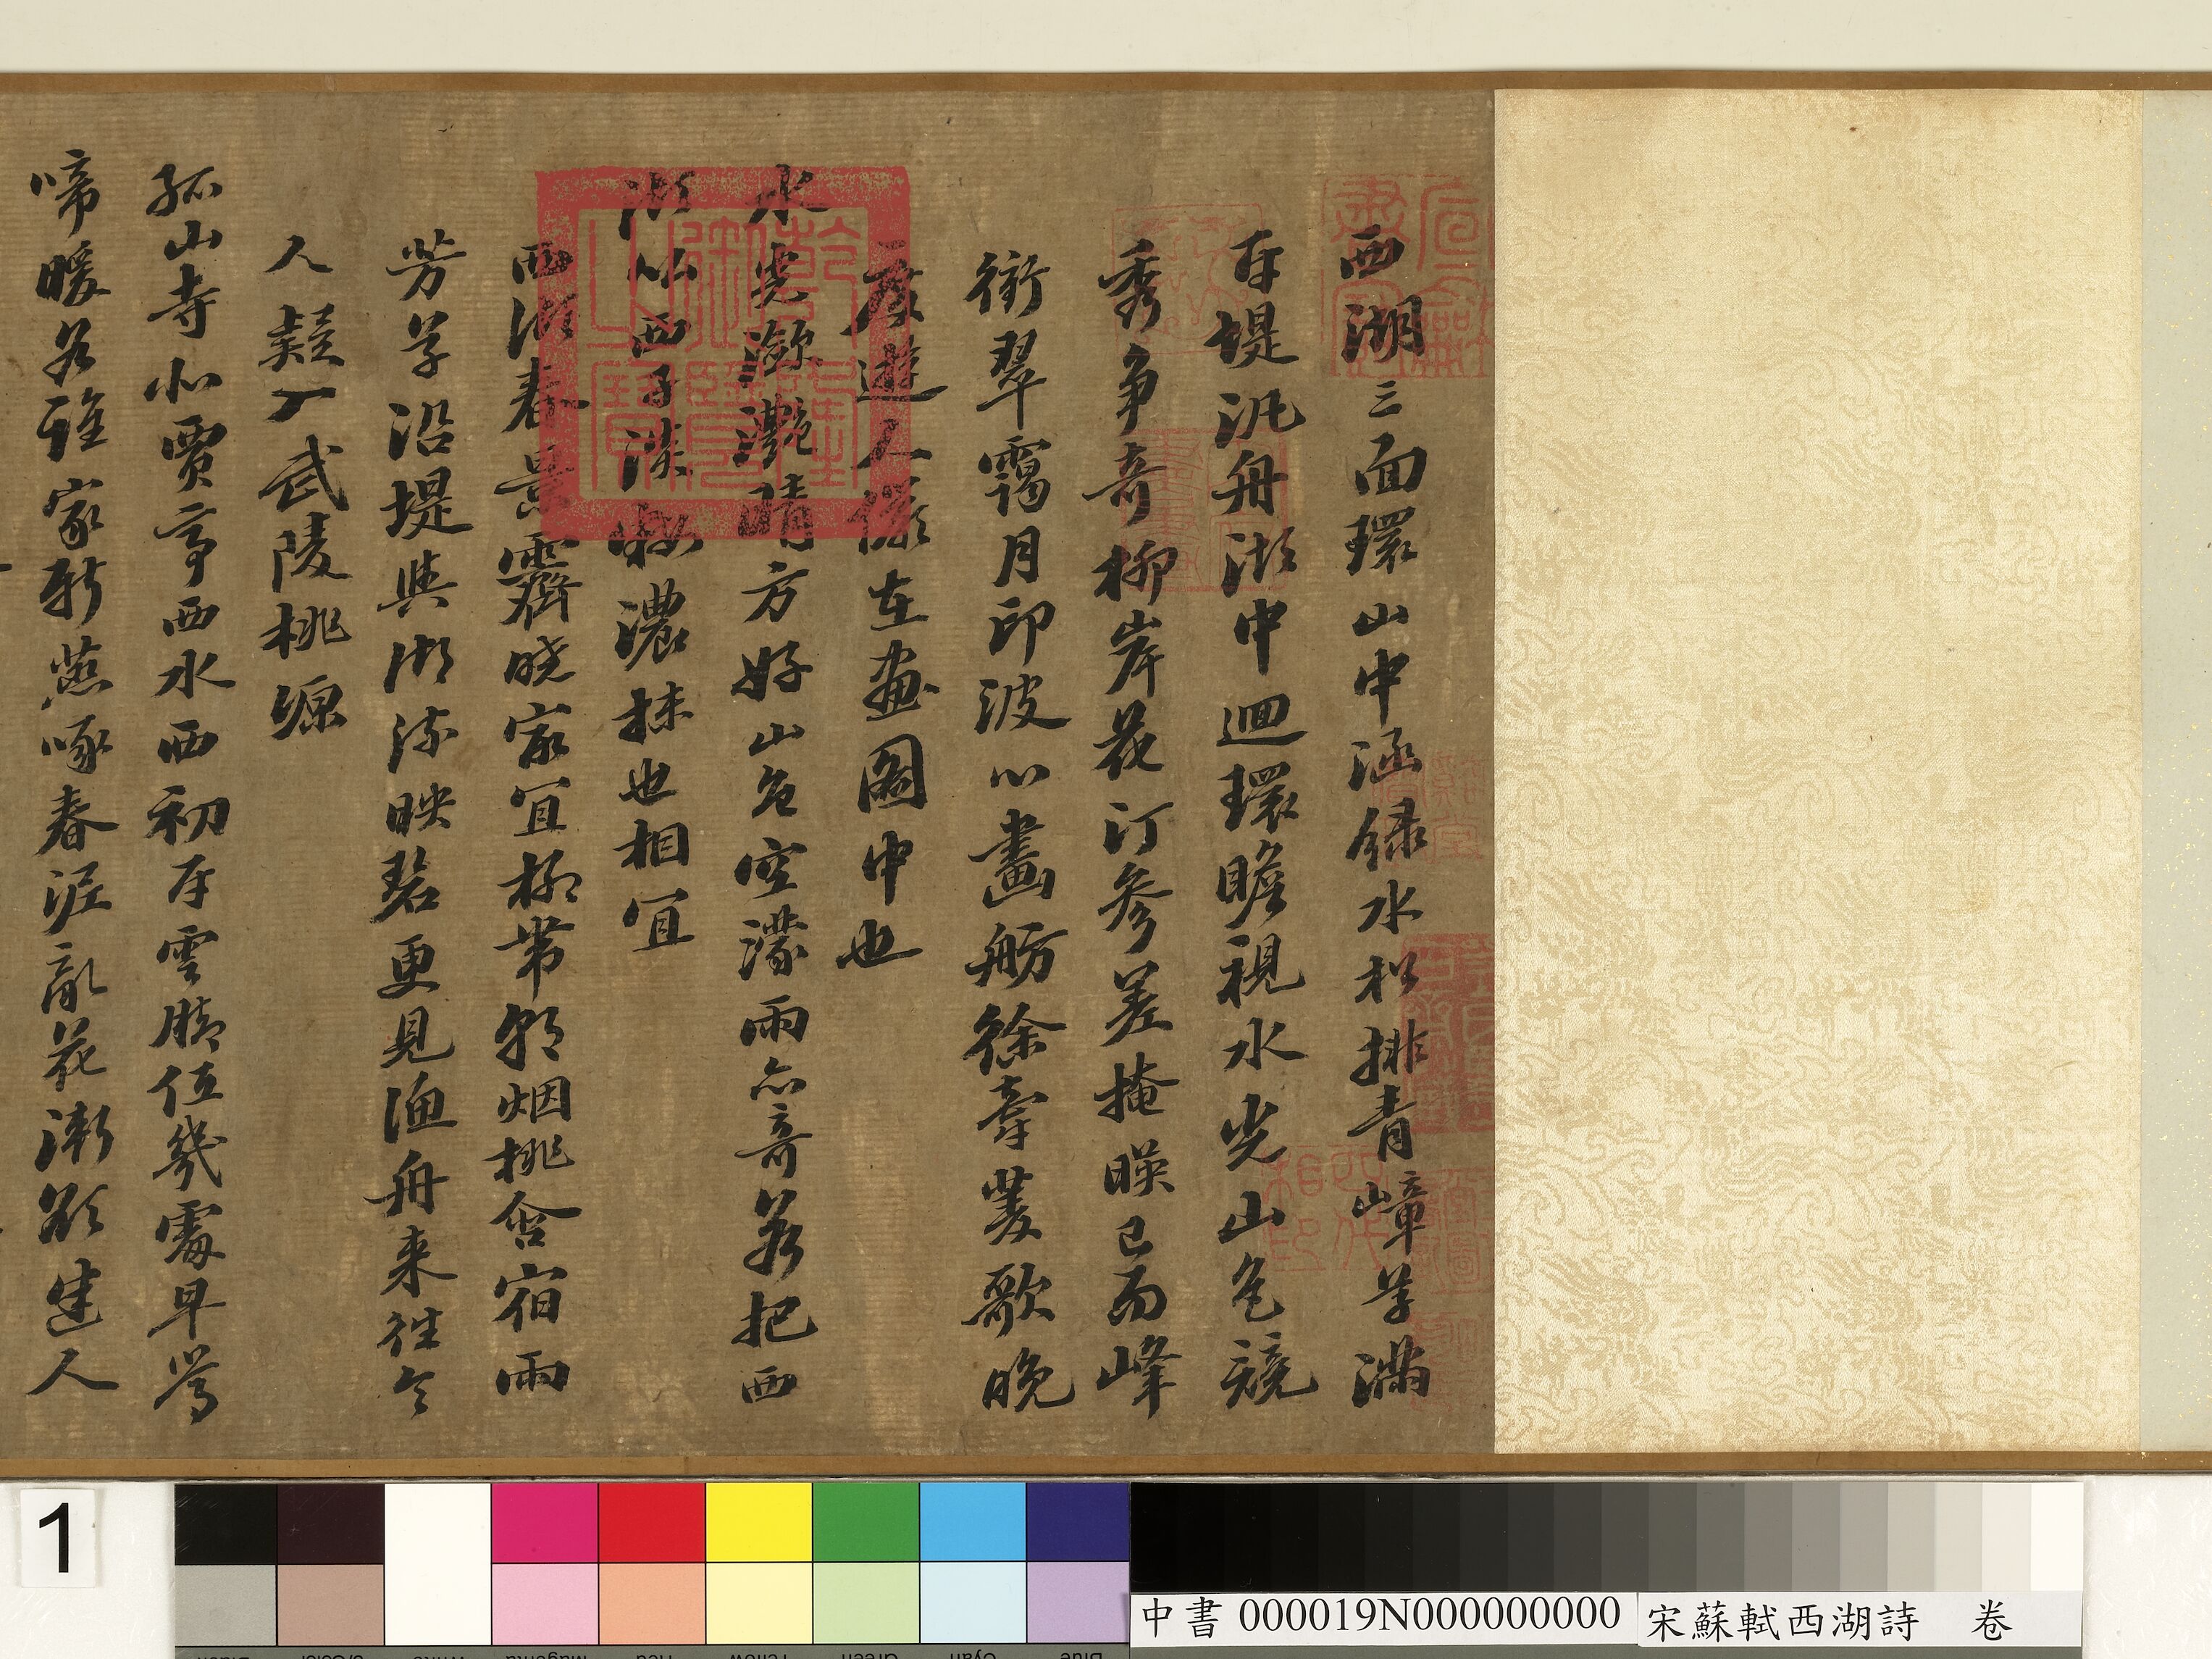 西湖三面環山中涵綠水松排青嶂草滿
百堤汎舟湖中迴環瞻視水光山色競
秀爭奇柳岸花汀參差掩映已而峰
銜翠靄月印波心畫舫徐牽菱歌晚
度遊人儼在畫圖中也
水光瀲灧晴方好山色空濛雨亦奇若把西
湖似西子淡粧濃抹也相宜
西湖春景霽曉家宜柳帶朝烟桃含宿雨
芳草沿堤與湖流映碧更見漁舟來往令
人疑入武陵桃源
孤山寺北賈亭西水面初平雲腳低幾處早鶯
啼暖谷誰家新燕啄春泥亂花漸欲迷人
1
中書 000019N000000000
宋蘇軾西湖詩 卷